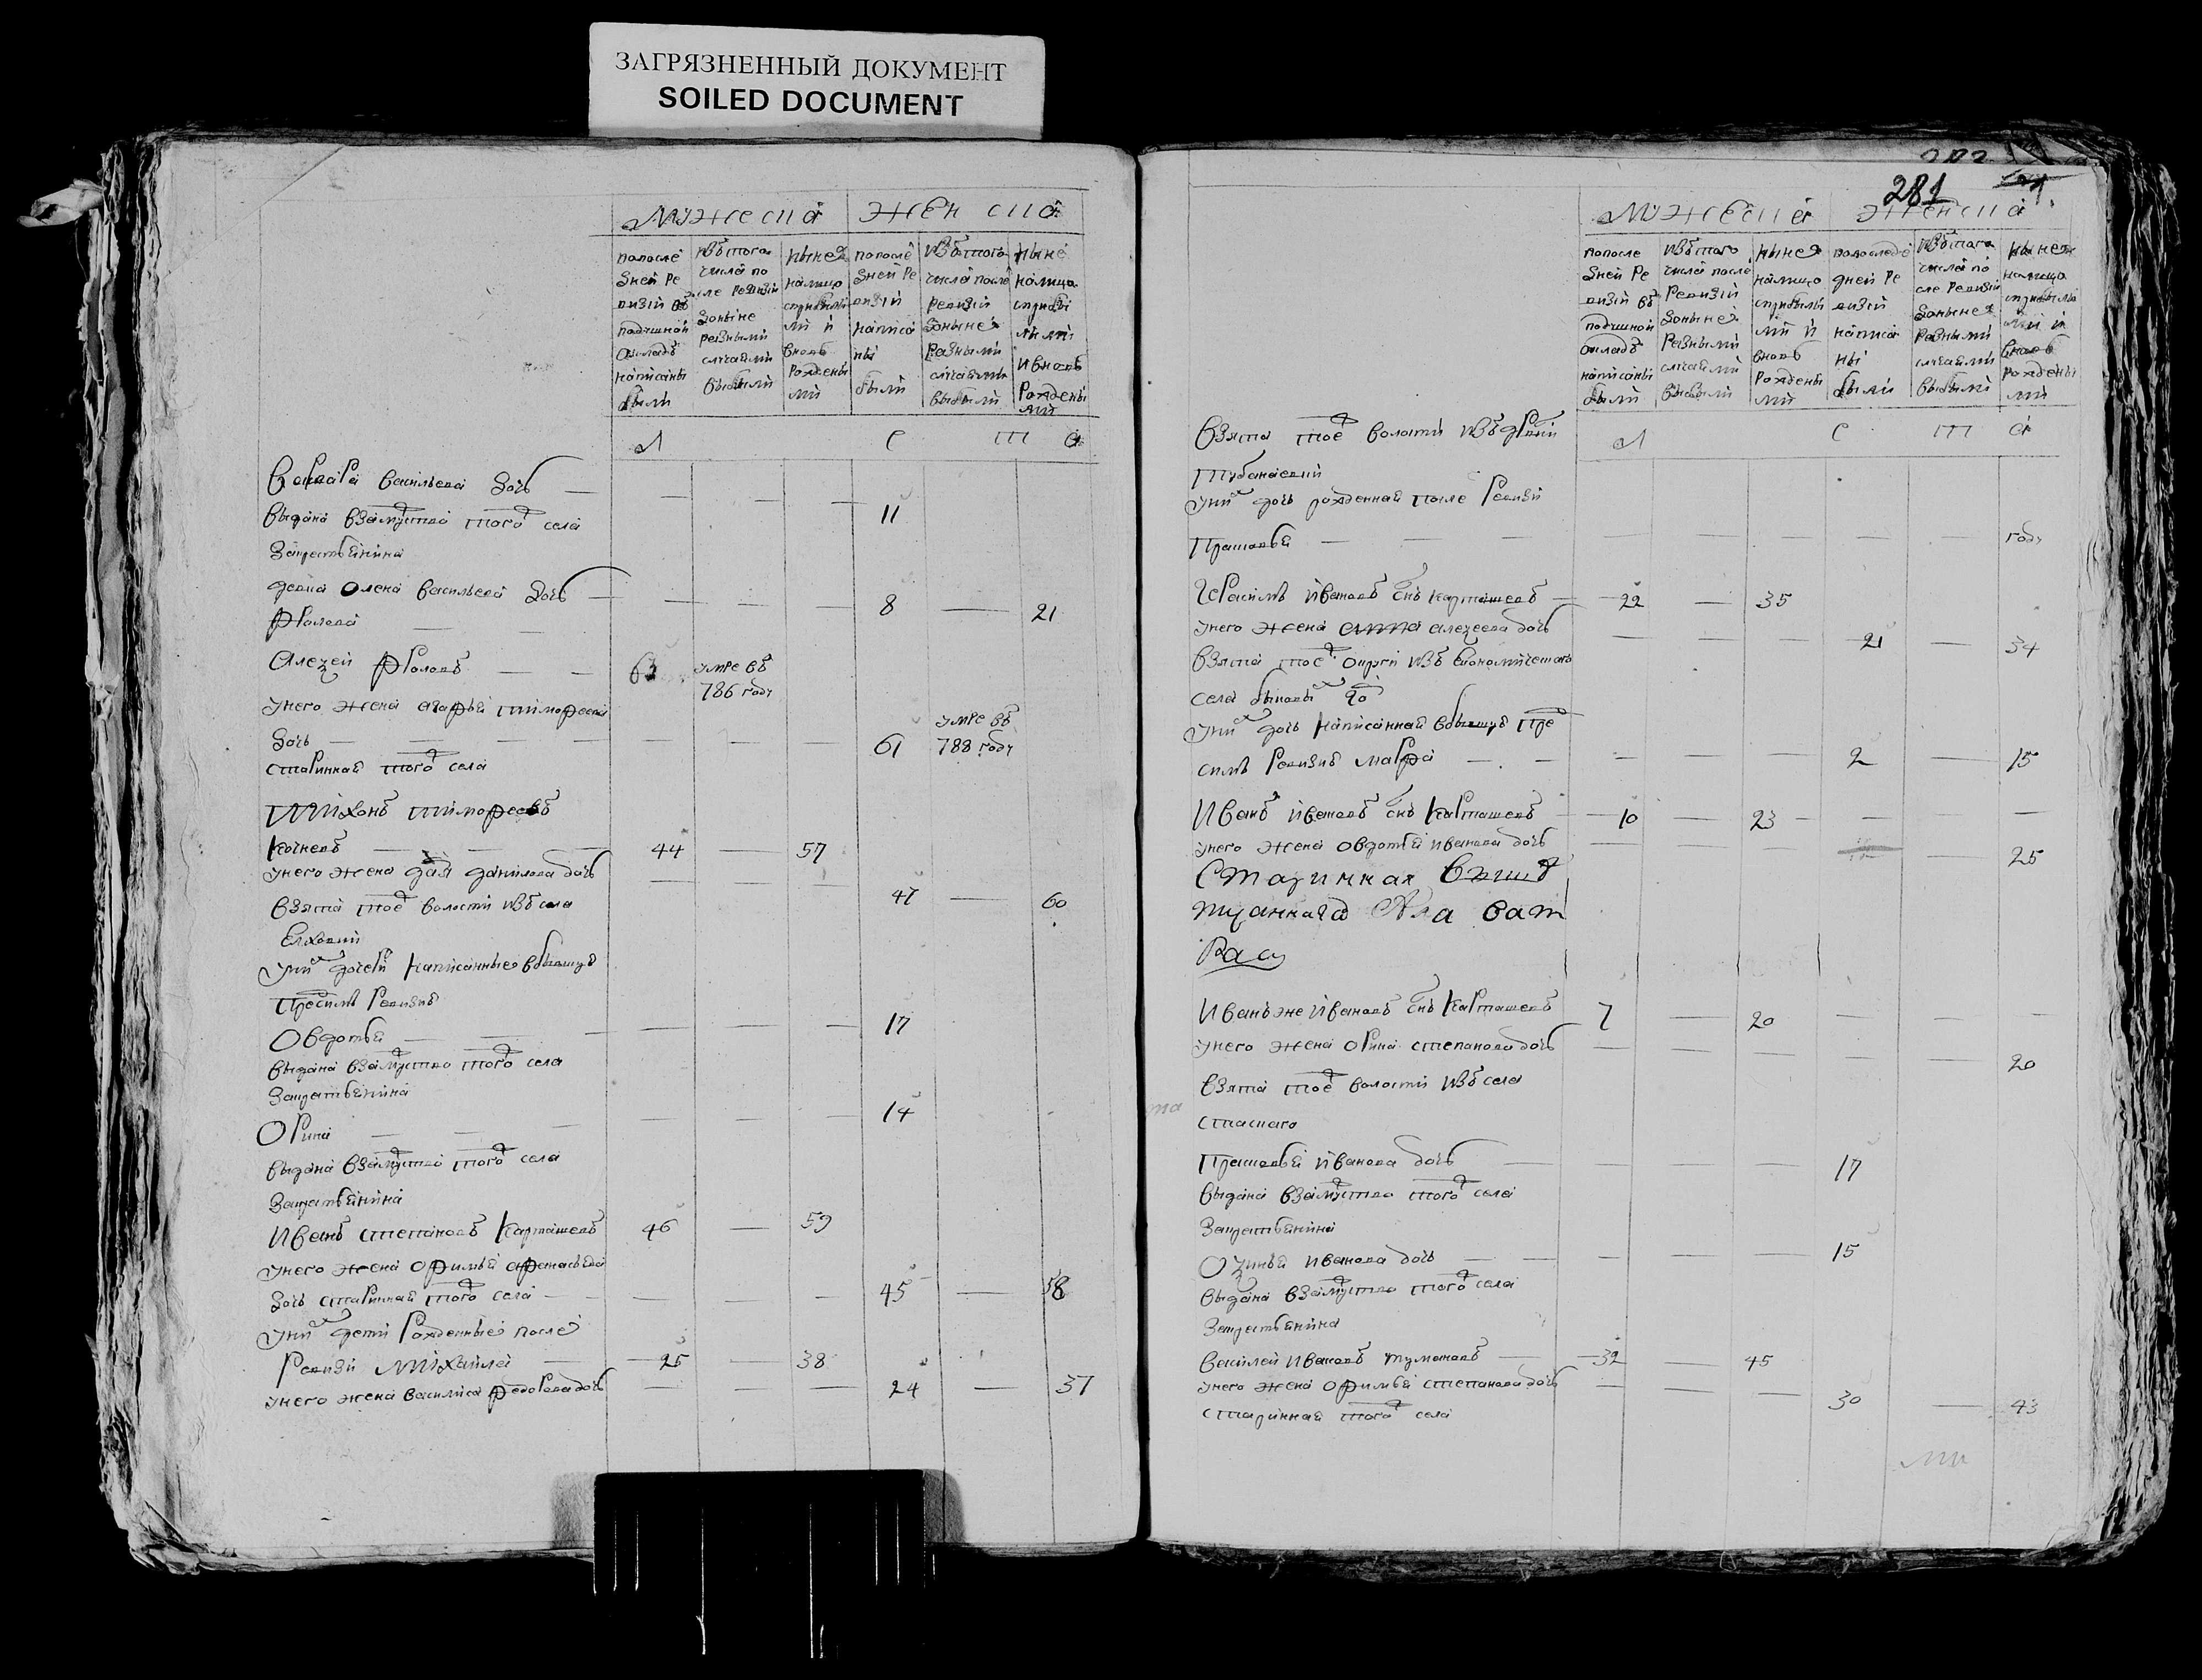 ЗАГРЯЗНЕННЫЙ ДОКУМЕНТ
SOILED DOCUMENT
Мужеска Женска
по после дней ревизий въ подушной окладъ написаны были
изъ того числа по сле ревизий до ныне разными случаями выбыли
ныне на лицо с прибылыми и вновь рожденыи ми
по после дней ревизий написа ны были
изъ того числа после ревизий до ныне разными случаями выбыли
ныне на лицо с прибылыми и вновь рожденыи ми
Л е т а
Варвара Васильева дочь 11
выдана взамужство того села
за крестьянина
девка Олена Васильева дочь 8 21
Фролова
Алексей Фроловъ 63 умре въ 786 году
у него жена Агафья Тимофеева
дочь 61 умре въ 788 году
старинная того села
Тихонъ Тимофеевъ
Кочневъ 44 57
у него жена дарья данилова дочь 47 60
взята тое волости изъ села
Елховки
у них дочери написанные в бывшую
пред сим ревизию
Овдотья 17
выдана взамужство того села
за крестьянина
Орина 14
выдана взамужство того села
за крестьянина
Иванъ Степановъ Карташевъ 46 59
у него жена Офимья Афанасьева
дочь старинная того села 45 58
у них дети рожденные после
ревизи Михайла 25 38
у него жена Василиса Федорова дочь 24 37
281
Мужеска Женска
по после дней ревизий въ подушной окладъ написаны были
изъ того числа после ревизий до ныне разными случаями выбыли
ныне на лицо с прибылыми и вновь рожденыи ми
по последней ревизий написа ны были
изъ того числа по сле ревизии до ныне разными случаями выбыли
ныне на лицо с прибылыми и вновь рождены ми
взята тое волости изъ дрвни
Л е т а
Тубанаевки
у них дочь рожденная после ревизи
Прасковья году
Герасимъ Ивановъ снъ Карташевъ 22 35
у него жена Анна Алексеева дочь 21 34
взята тое округи изъ Економическаго
села
у них дочь написанная в бывшую пре
симъ ревизию Марфа 2 15
Иванъ Ивановъ снъ Карташевъ 10 23
у него жена Овдотья Иванова дочь 25
Старинная
села Ват
раса
Иванъ же Ивановъ снъ Карташевъ 7 20
у него жена Орина Степанова дочь 20
взята тое волости изъ села
Спаскаго
Прасковья Иванова дочь 17
выдана взамужство того села
за крестьянина
Оксинья Иванова дочь 15
выдана взамужство того села
за крестьянина
Василей Ивановъ Тумановъ 32 45
у него жена Офимья Степанова дочь 30 43
старинная того села